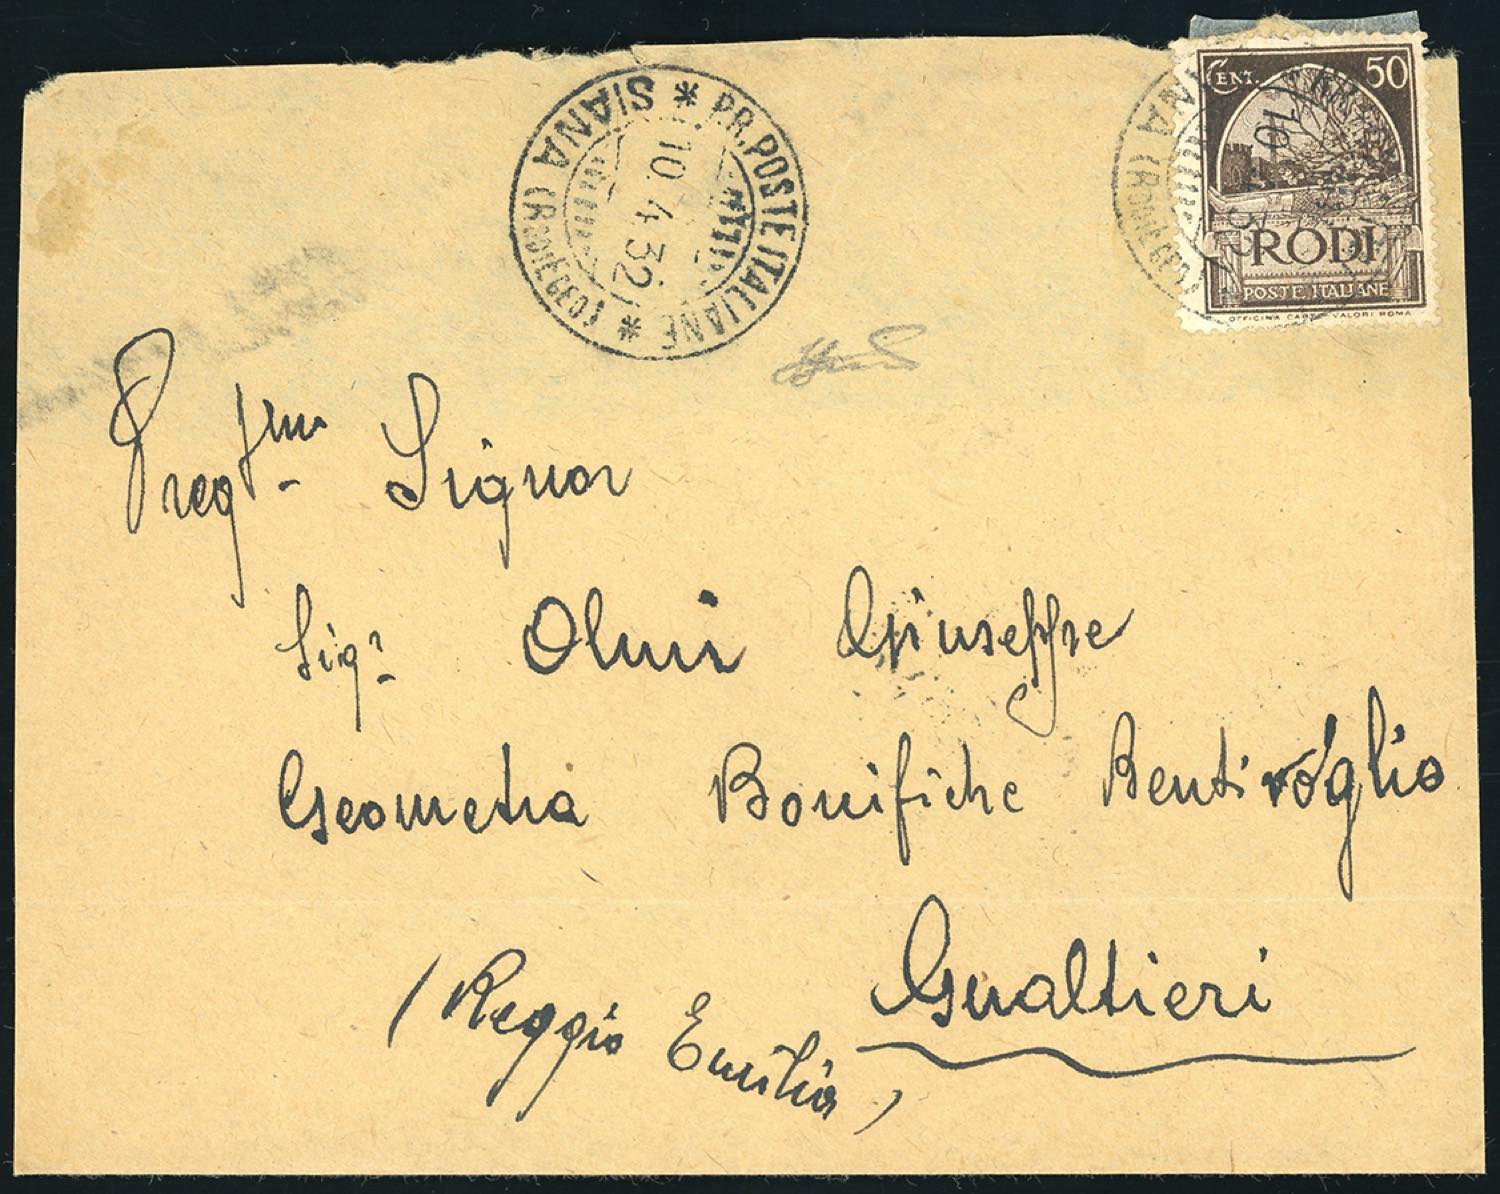 PR. POSTE ITALIANE * (EGEO) * SIANA (RODI EGEO)
10.4.32
CENT. 50
RODI
POSTE ITALIANE
OFFICINA CARTE VALORI ROMA
Pregmo Signor
Sigr Olmi Giuseppe
Geometra Bonifiche Bentivoglio
Gualtieri
(Reggio Emilia)